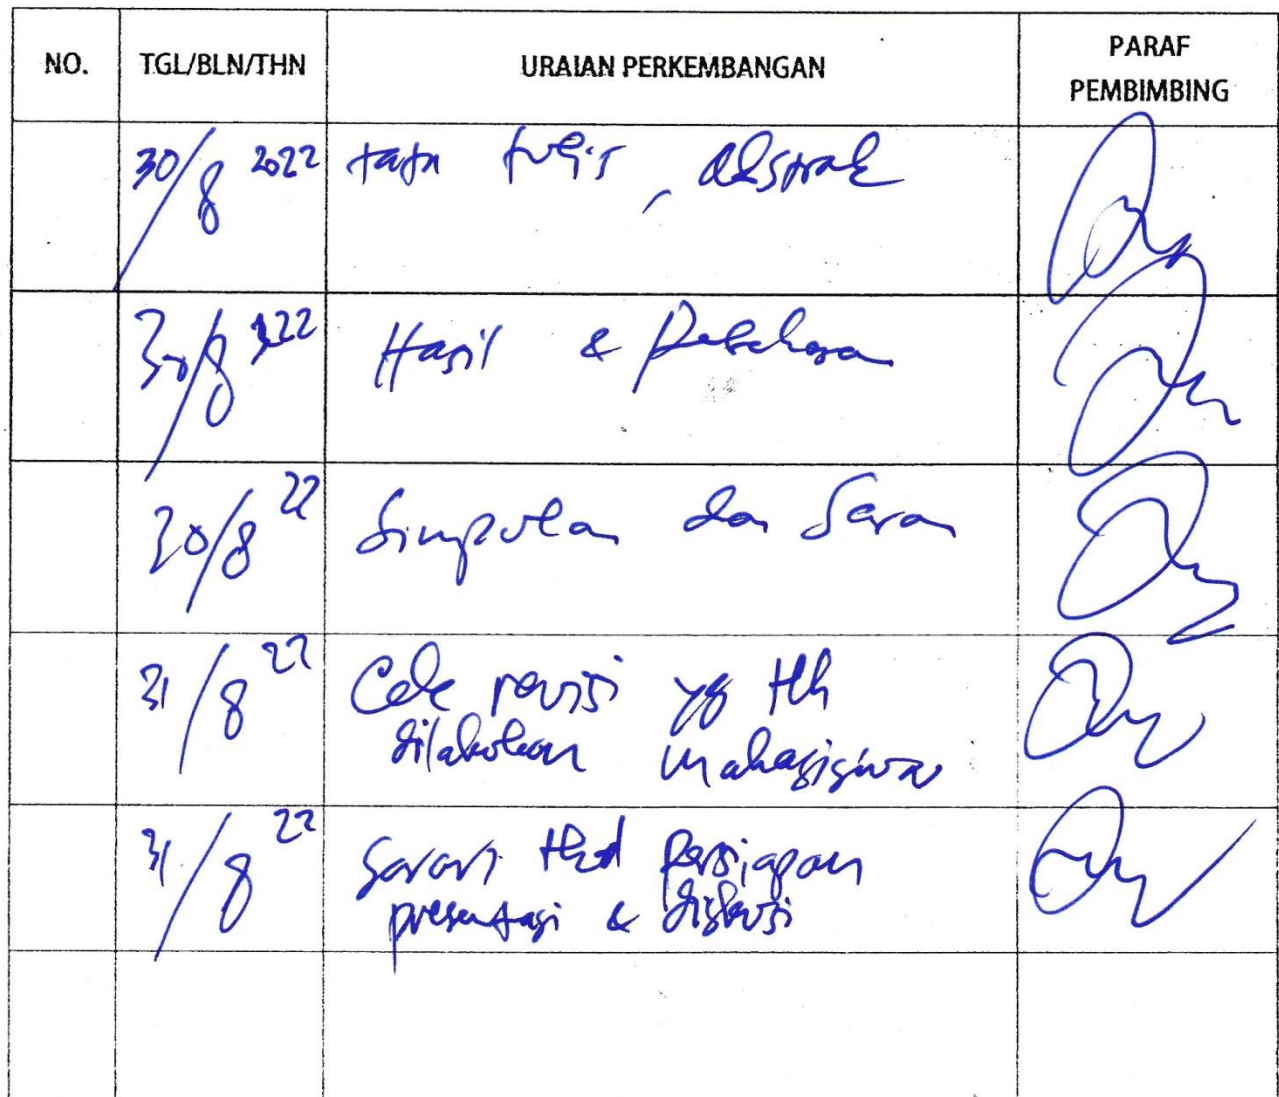 NO. TGL/BLN/THN URAIAN PERKEMBANGAN PARAF
PEMBIMBING
30/8 2022 tata tulis, abstrak
30/8 22 Hasil &
30/8 22 Simpulan dan Saran
31/8 22 Cek revisi yg tlh
dilakukan mahasiswa
31/8 22 Saran thd persiapan
presentasi & diskusi